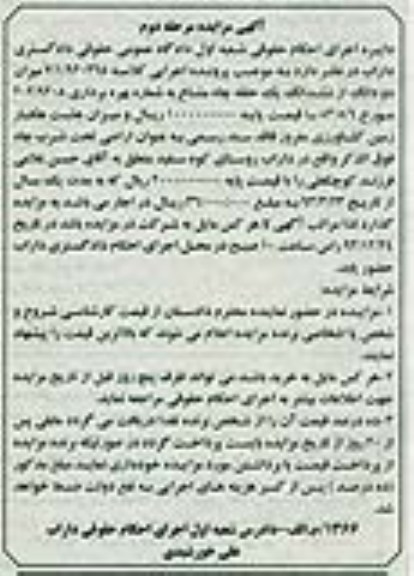 آگهی مزایده مرحله دوم
دایره اجرای احکام حقوقی شعبه اول دادگاه عمومی حقوقی دادگستری
داراب در نظر دارد به موجب پرونده اجرایی کلاسه
دو دانگ از ششدانگ یک حلقه چاه مشاع به شماره بهره برداری
مورخ با قیمت پایه ریال و میزان هشت هکتار
زمین کشاورزی مفروز فاقد سند رسمی به عنوان اراضی تحت شرب چاه
فوق الذکر واقع در داراب روستای کوه سفید متعلق به آقای حسن
فرزند را با قیمت پایه ریال که به مدت یک سال
از تاریخ به مبلغ ریال در اجاره می باشد به مزایده
گذارد لذا مراتب آگهی تا هر کس مایل به شرکت در مزایده باشد در تاریخ
راس ساعت ۱۰ صبح در محل اجرای احکام دادگستری داراب
حضور یابد.
شرایط مزایده:
۱-مزایده در حضور نماینده محترم دادستان از قیمت کارشناسی شروع و
شخص یا اشخاصی برنده مزایده اعلام می شوند که بالاترین قیمت را پیشنهاد
نمایند.
۲-هر کس مایل به خرید باشد می تواند ظرف پنج روز قبل از تاریخ مزایده
جهت اطلاعات بیشتر به اجرای احکام حقوقی مراجعه نماید.
۳-ده درصد قیمت آن را از شخص برنده نقدا دریافت می گردد مابقی پس
از ۳۰ روز از تاریخ مزایده بایست پرداخت گردد در صورتیکه برنده مزایده
از پرداخت قیمت یا برداشتن مورد مزایده خودداری نمایند مبلغ مذکور
(ده درصد) پس از کسر هزینه های اجرایی به نفع دولت ضبط خواهد
شد.
۱۳۶۶/م الف-دادرس شعبه اول اجرای احکام حقوقی داراب
علی خورشیدی